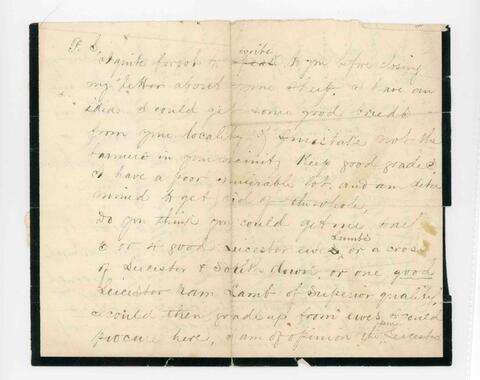 P. S.
I quite forgot to write to you before closing
my letter about some sheep. I have an
idea I could get some good breeds
from your locality, if I mistake not the
farmers in your vicinity Keep good grades,
I have a poor miserable lot, and am deter
mined to get rid of the whole,
Do you think you could get me
3 or 4 good Leicester ewe Lambs or a cross
of Leicester & South down or one good
Leicester ram Lamb of Superior quality,
I could then grade up from ewes I could
procure here, I am of opinion the pure Leicester